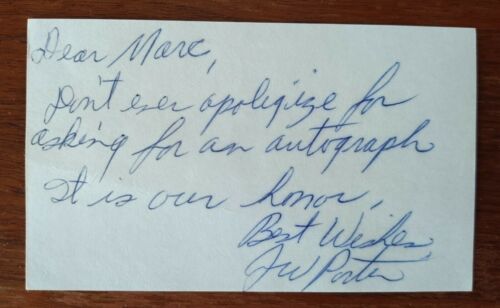 Dear Marc,
Don't ever apoligize for
asking for an autograph
It is our honor,
Best Wishes,
JW Porter